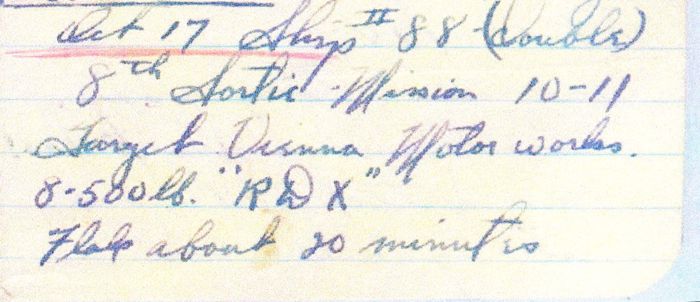 Oct 17 Ship II 88 (double)
8th Sortie Mission 10-11
Target Vienna Motor works.
8-500 lb. "RDX"
Flak about 20 minutes